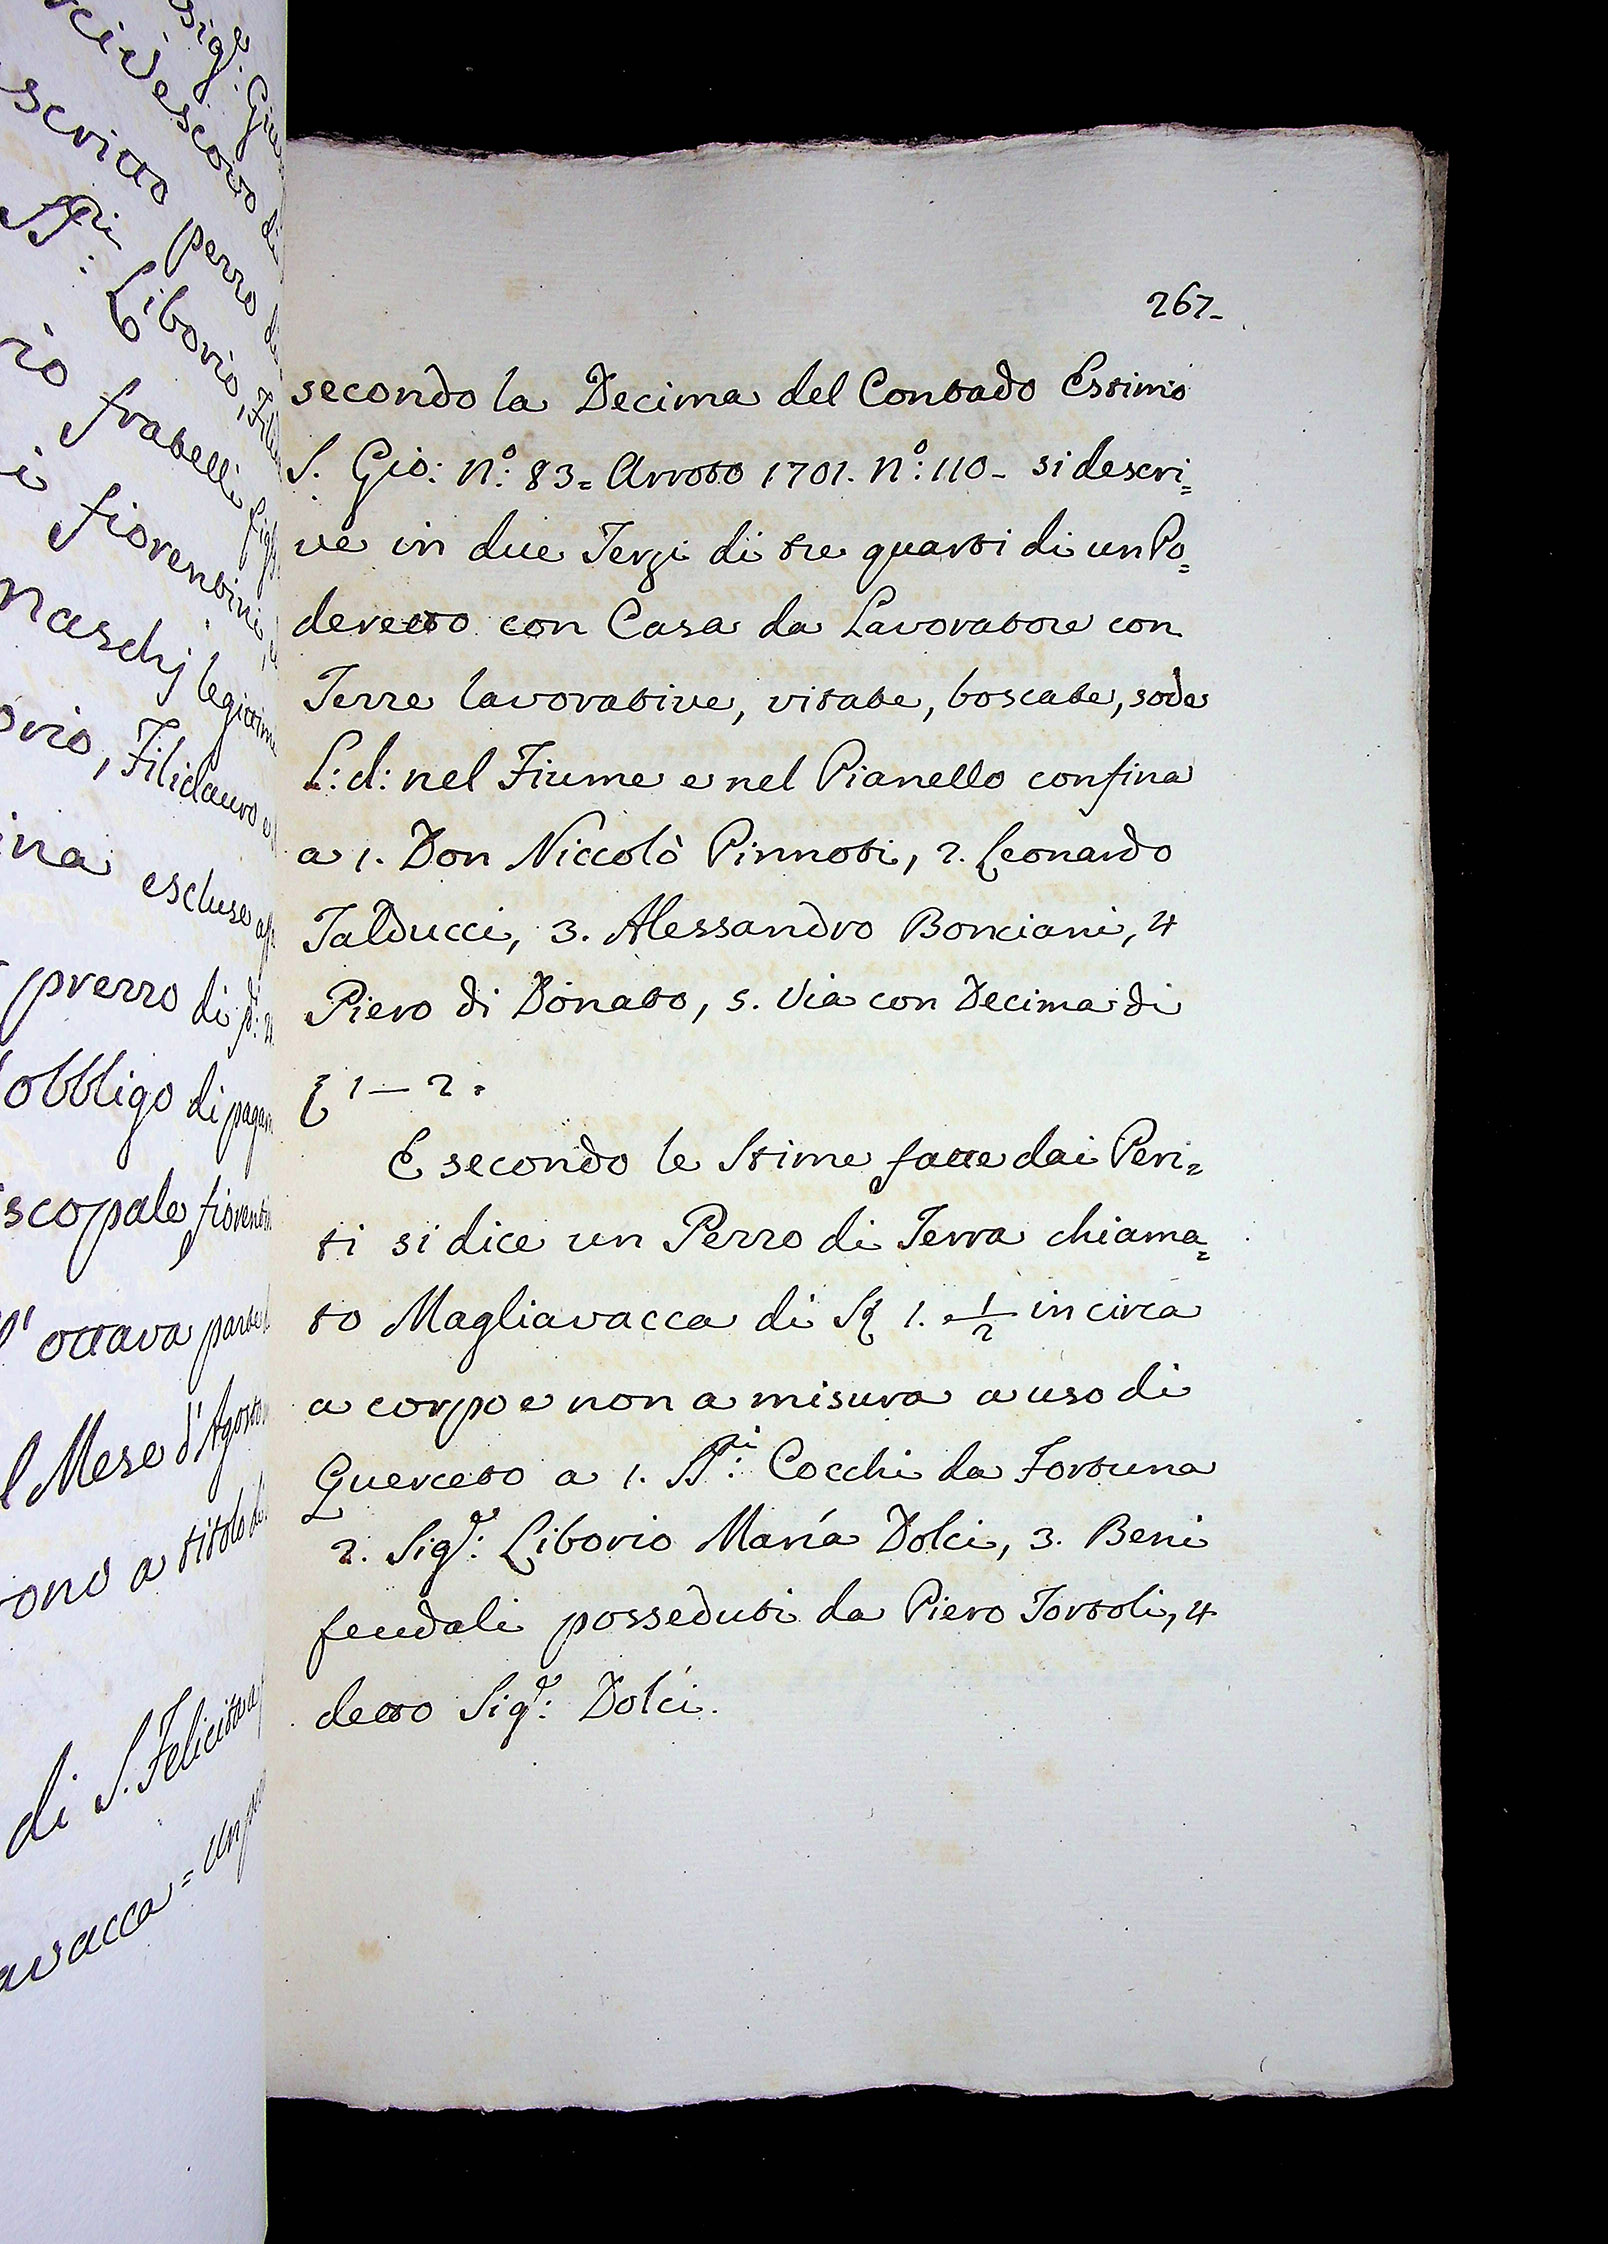 sig.re: Giu
civescovo di
scritto pezzo di
SS.ri: Liborio, Fili
rio fratelli figli
i fiorentini,
maschj legittimi
orio, Filidauro e
ina escluse
prezzo di
obbligo di pagare
scopale fiorenti
l'ottava parte
l Mese d'Agosto
ono a titolo di
di S. Felicita a
avacca = Un pe
267_
secondo la Decima del Contado Estimo
S. Gio: N.º: 83= Arroto 1701. N.º: 110_ si descri=
ve in due Terzi di tre quarti di un Po=
deretto con Casa da Lavoratore con
Terre lavorative, vitate, boscate, sode
L: d: nel Fiume e nel Pianello confina
a 1. Don Niccolò Pinnoti, 2. Leonardo
Talducci, 3. Alessandro Bonciani, 4
Piero di Donato, 5. Via con Decima di
ξ 1 — 2 =
E secondo le Stime fatte dai Peri=
ti si dice un Pezzo di Terra chiama=
to Magliavacca di St 1. 1/2 in circa
a corpo e non a misura a uso di
Querceto a 1. SS.ri: Cocchi da Fortuna
2. Sig.re: Liborio Maria Dolci, 3. Beni
feudali posseduti da Piero Tortoli, 4
detto Sig.re: Dolci.